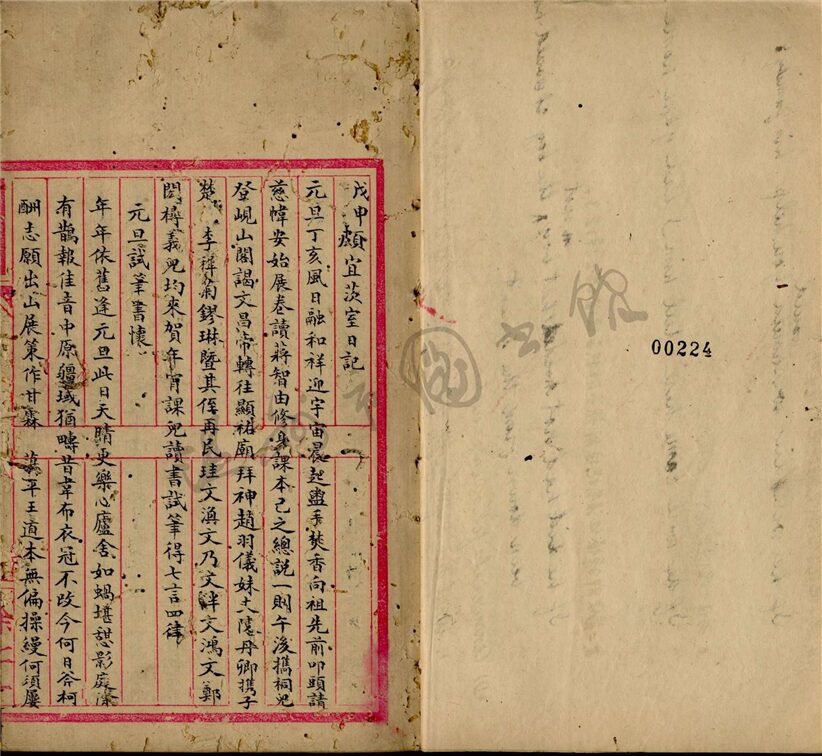 00224
戊申頗宜茨室日記
元旦丁亥風日融和祥迎宇宙晨起盥手焚香向祖先前叩頭請
慈幃安始展卷讀蔣智由修身課本己之總說一則午後攜桐兒
登峴山閣謁文昌帝轉往顯祐廟拜神趙羽儀妹丈隨丹卿攜子
楚 李稚菊鏐琳暨其侄再民珪文滇文乃文泮文鴻文鄭
閎樽義兒均來賀年宵課兒讀書試筆得七言四律
元旦試筆書懷
年年依舊逢元旦此日天晴更樂心廬舍如蝸堪憩影庭
有鵲報佳音中原疆域猶疇昔韋布衣冠不改今何日斧柯
酬志願出山展策作甘霖 蕩平王道本無偏操縵何須屢